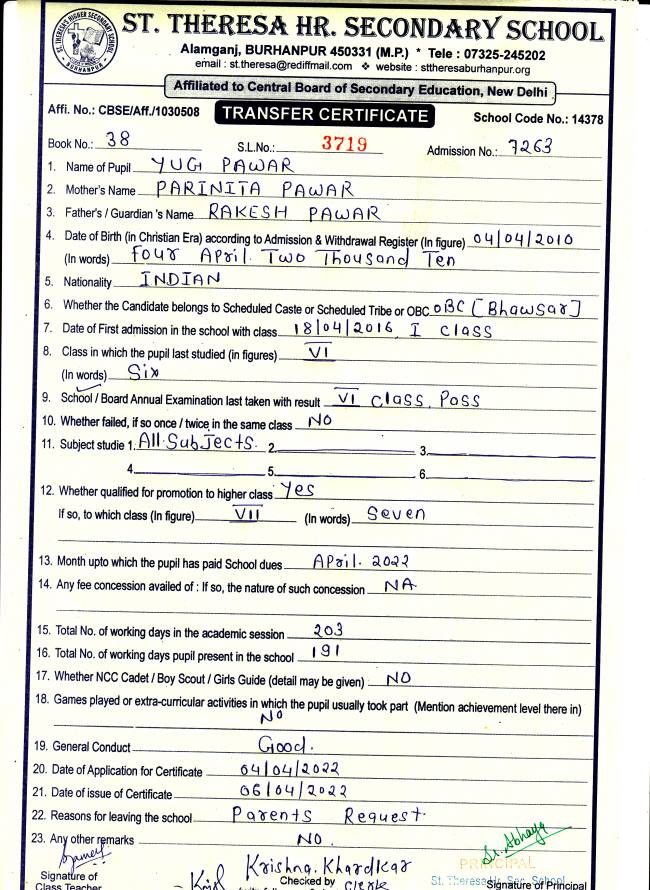 ST. THERESA'S HIGHER SECONDARY SCHOOL
BURHANPUR
ST. THERESA HR. SECONDARY SCHOOL
Alamganj, BURHANPUR 450331 (M.P.) * Tele : 07325-245202
email : st.theresa@rediffmail.com ❖ website : sttheresaburhanpur.org
Affiliated to Central Board of Secondary Education, New Delhi
Affi. No.: CBSE/Aff./1030508 TRANSFER CERTIFICATE School Code No.: 14378
Book No.: 38 S.L.No.: 3719 Admission No.: 7263
1. Name of Pupil YUG PAWAR
2. Mother's Name PARINITA PAWAR
3. Father's / Guardian 's Name RAKESH PAWAR
4. Date of Birth (in Christian Era) according to Admission & Withdrawal Register (In figure) 04/04/2010
(In words) Four April. Two Thousand Ten
5. Nationality INDIAN
6. Whether the Candidate belongs to Scheduled Caste or Scheduled Tribe or OBC OBC [Bhawsar]
7. Date of First admission in the school with class 18/04/2016, I class
8. Class in which the pupil last studied (in figures) VI
(In words) Six
9. School / Board Annual Examination last taken with result VI class, Pass
10. Whether failed, if so once / twice in the same class NO
11. Subject studie 1. All Subjects. 2. 3.
4. 5. 6.
12. Whether qualified for promotion to higher class Yes
If so, to which class (In figure) VII (In words) Seven
13. Month upto which the pupil has paid School dues April. 2022
14. Any fee concession availed of : If so, the nature of such concession NA
15. Total No. of working days in the academic session 203
16. Total No. of working days pupil present in the school 191
17. Whether NCC Cadet / Boy Scout / Girls Guide (detail may be given) NO
18. Games played or extra-curricular activities in which the pupil usually took part (Mention achievement level there in)
NO
19. General Conduct Good.
20. Date of Application for Certificate 04/04/2022
21. Date of issue of Certificate 06/04/2022
22. Reasons for leaving the school Parents Request.
23. Any other remarks NO.
Sr. Abhaya
Krishna. Khardkar PRINCIPAL
Signature of Checked by Clerk St. Theresa Hr. Sec. School
Class Teacher Signature of Principal